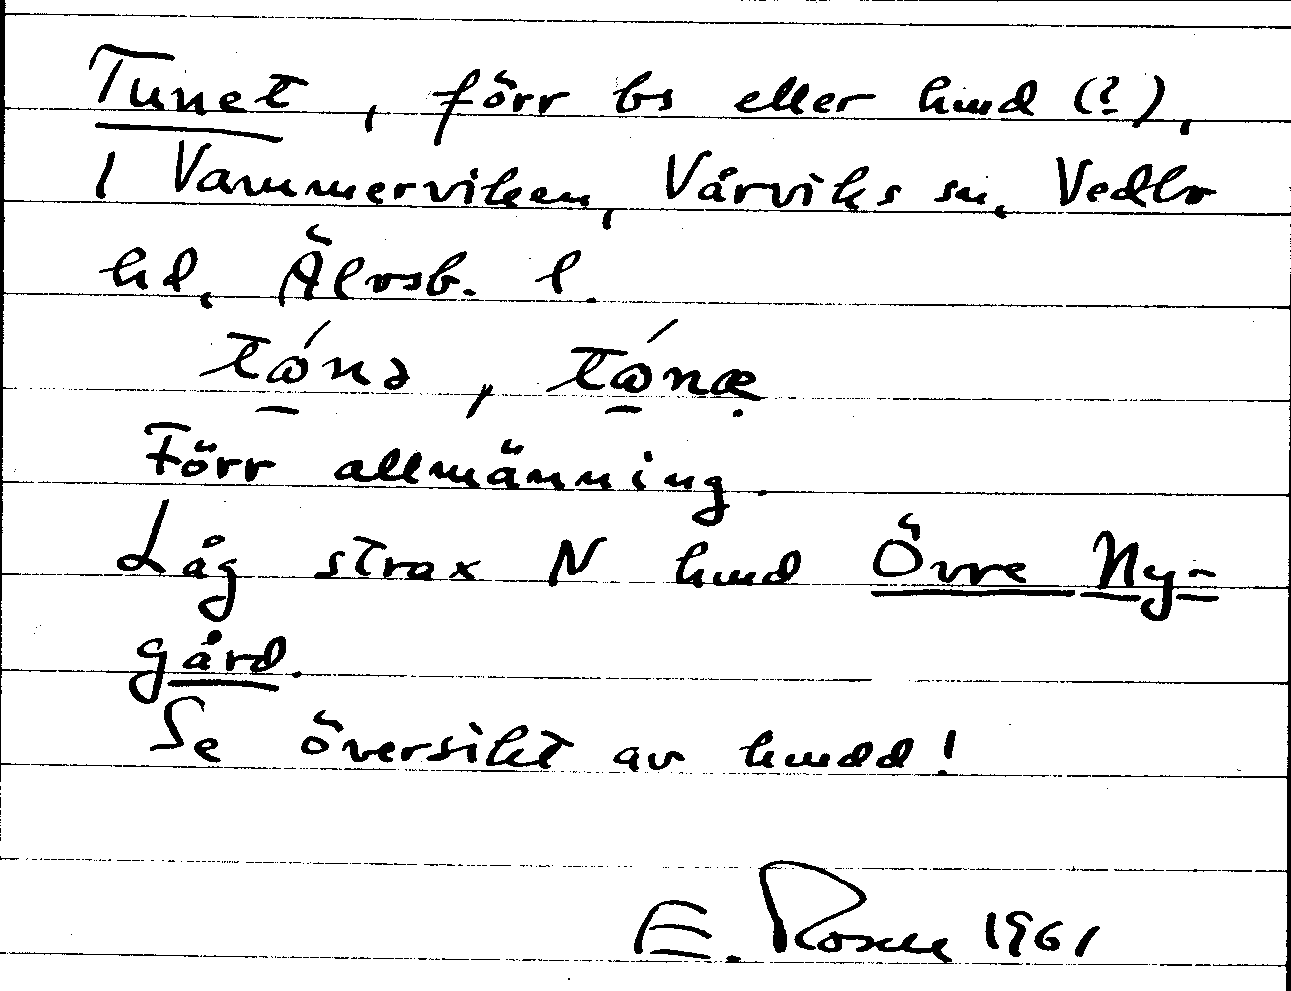 Tunet, förr bs eller hmd (?),
i Vammerviken, Vårviks sn, Vedbo
hd, Älvsb. l.
tǿnə, tǿnæ
Förr allmänning.
Låg strax N hmd Övre Ny-
gård.
Se översikt av hmdd!
E. Rosell 1961